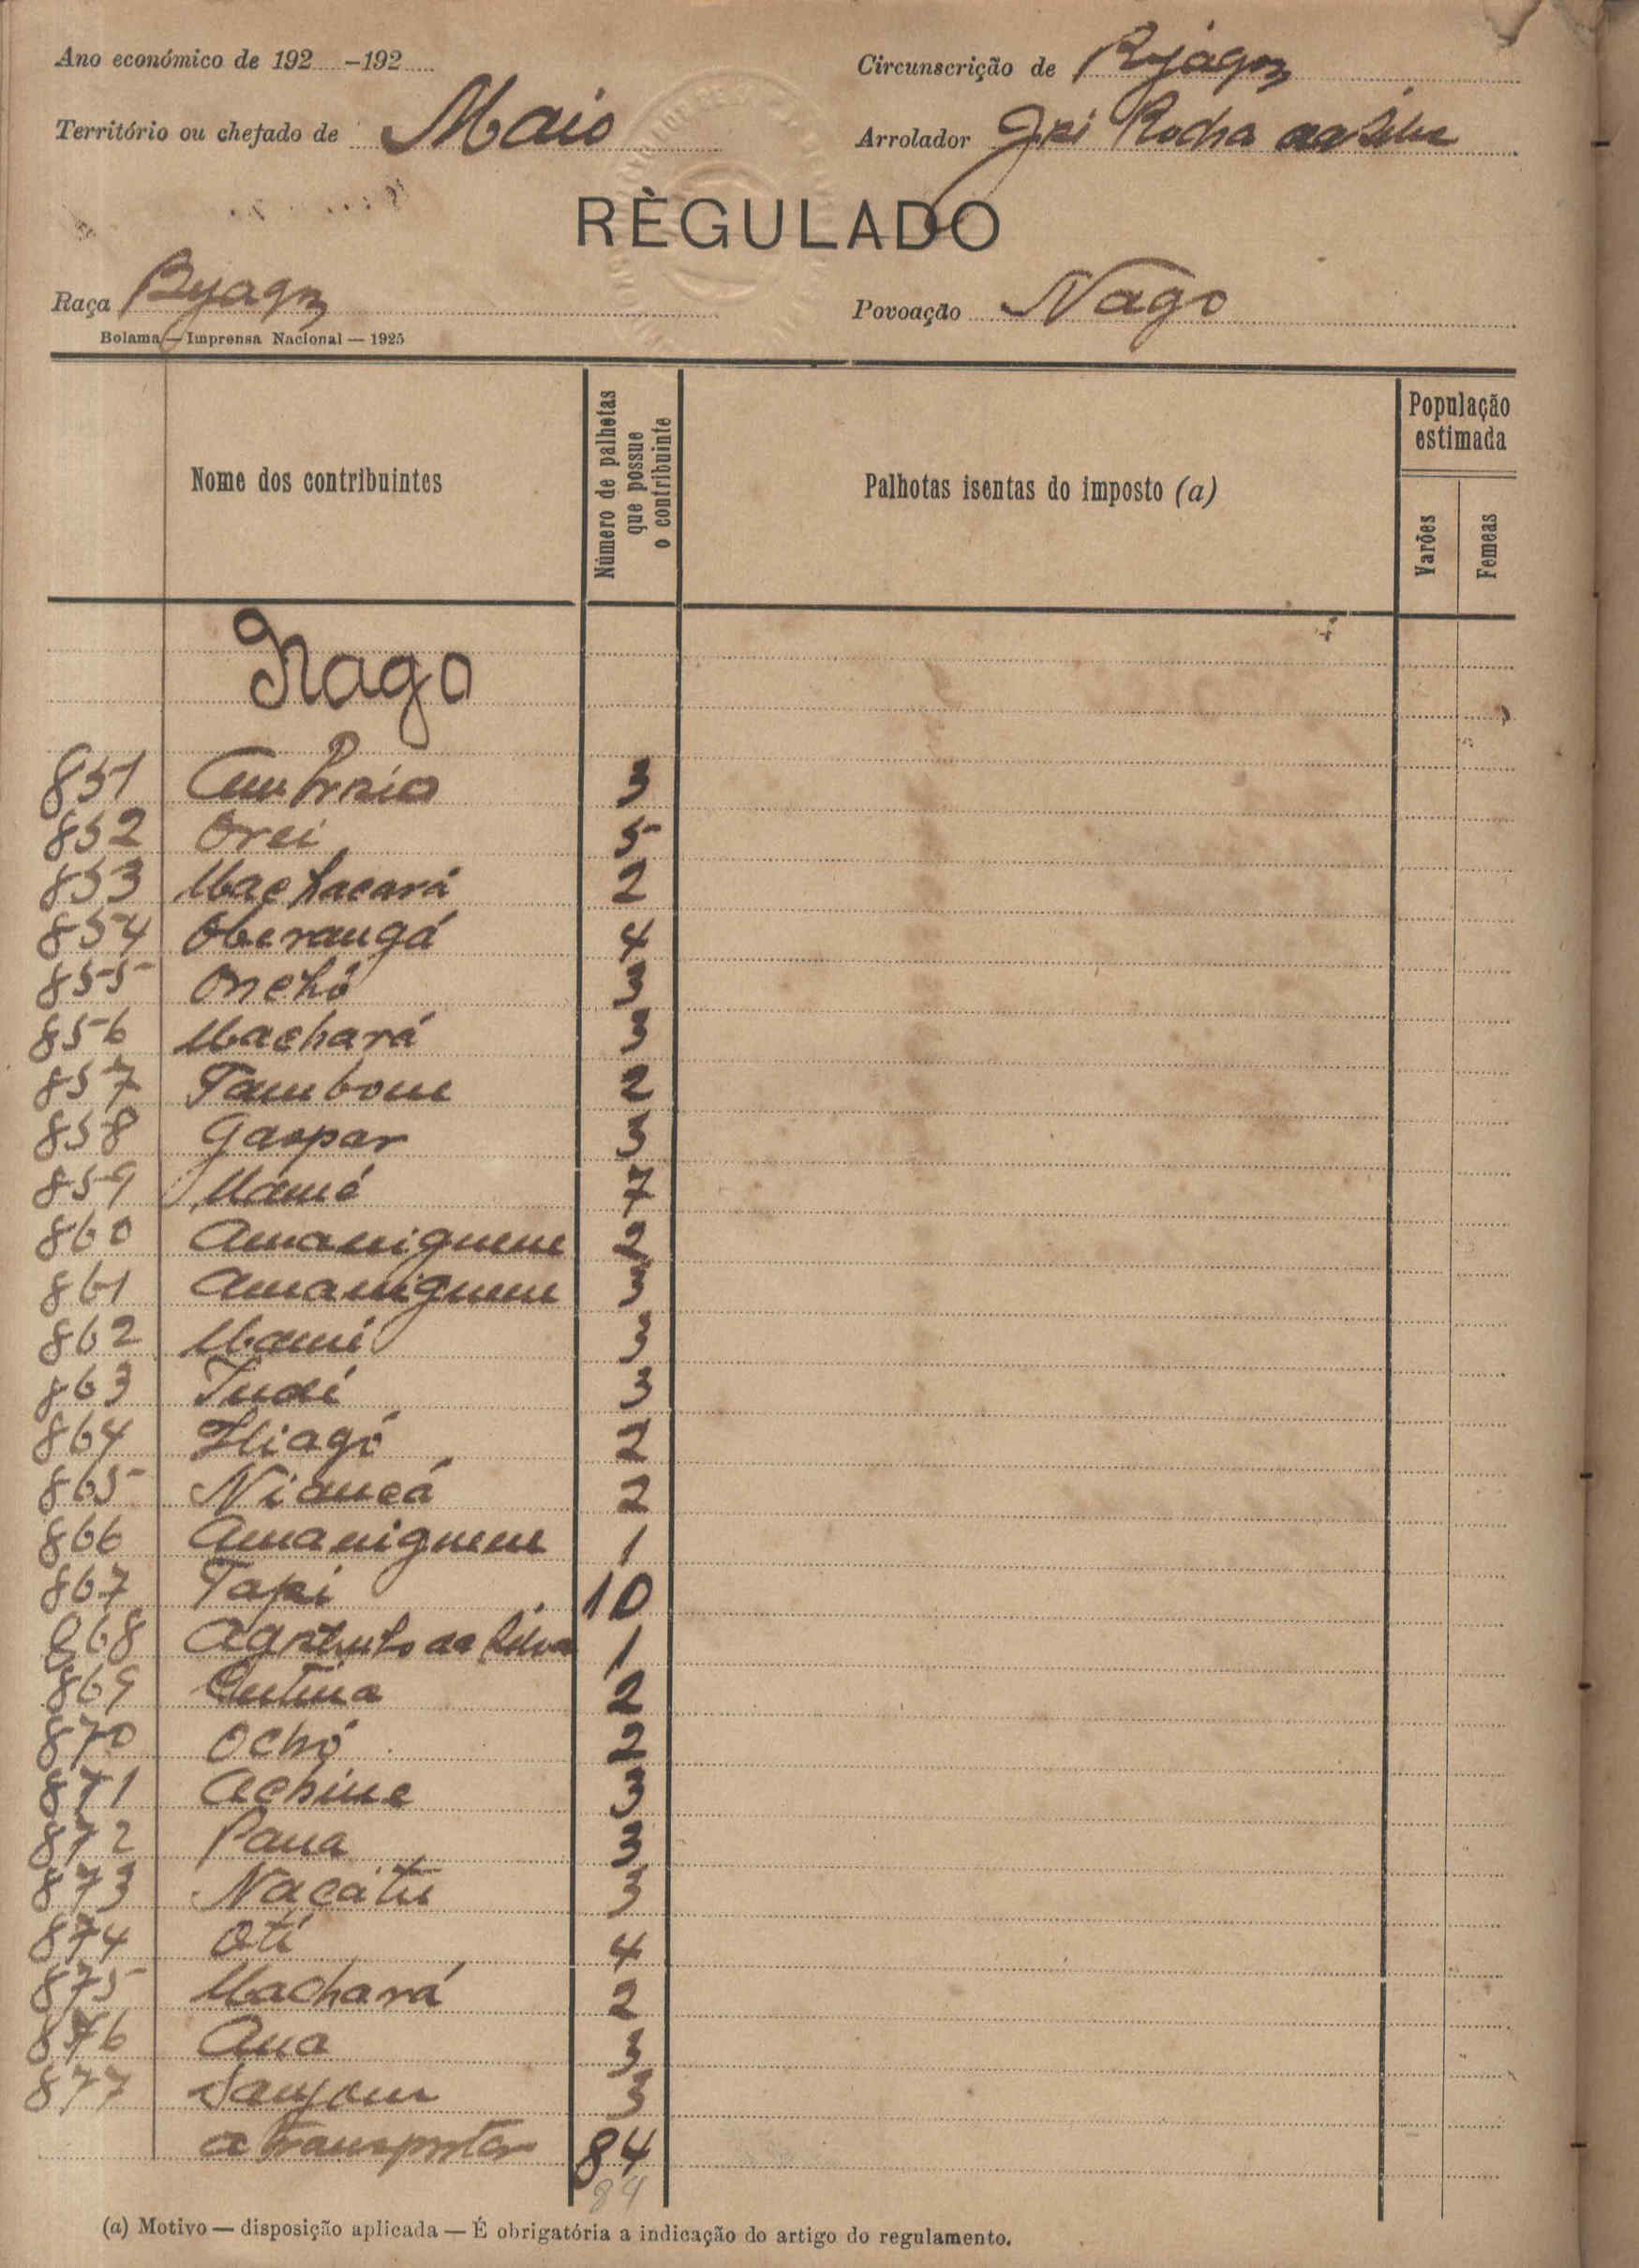 Ano económico de 192 -192
Circunscrição de Byagoz
Território ou chefado de Maio
Arrolador José Rocha da Silva
RÈGULADO
Raça Byagoz
Povoação Nago
Bolama — Imprensa Nacional — 1925
Nome dos contribuintes
Número de palhotas que possue o contribuinte
Palhotas isentas do imposto (a)
População estimada
Varões
Femeas
Nago
851 3
852 Orei 5
853 2
854 Oberangá 4
855 Onchó 3
856 Machará 3
857 Tambom 2
858 Gaspar 3
859 Mamé 7
860 Amaniguene 2
861 Amaniguene 3
862 Mami 3
863 Judi 3
864 2
865 Niancá 2
866 Amaniguene 1
867 Tapi 10
868 Agostinho da Silva 1
869 2
870 Ochó 2
871 Achine 3
872 Pana 3
873 Nacátu 3
874 Oti 4
875 Machará 2
876 Ana 3
877 Sanjam 3
a transportar 84
84
(a) Motivo — disposição aplicada — É obrigatória a indicação do artigo do regulamento.